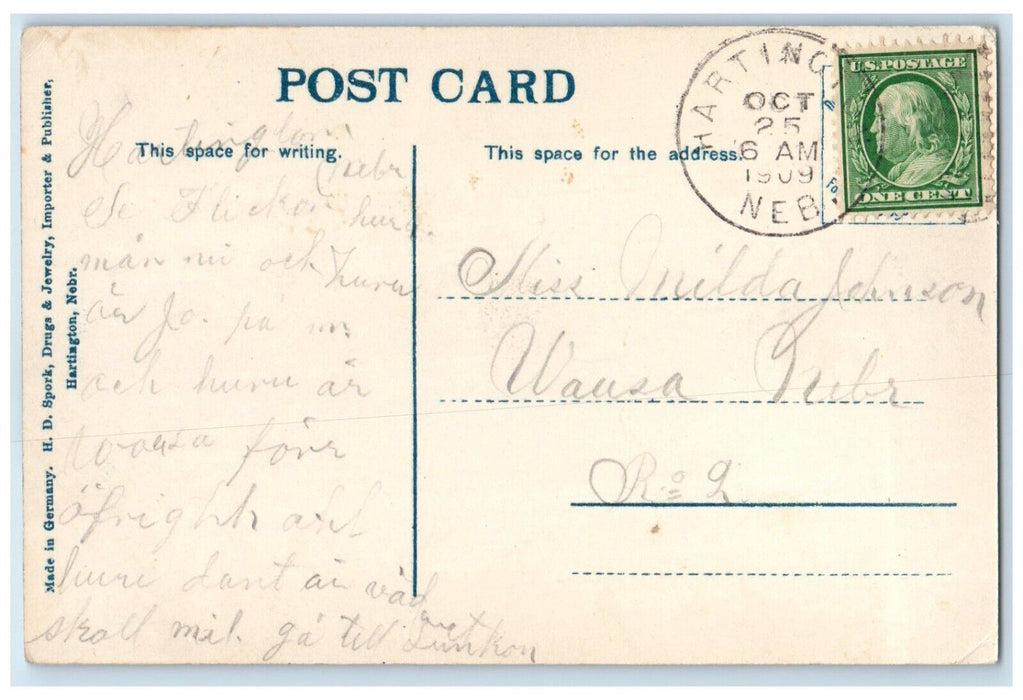 POST CARD
This space for writing.
This space for the address.
HARTINGT
OCT
25
6 AM
1909
NEB
U.S. POSTAGE
ONE CENT
Made in Germany. H. D. Spork, Drugs & Jewelry, Importer & Publisher,
Hartington, Nebr.
Hartington
nebr
Se Flickor huru
mån ni och huru
är Jo. på
och huru är
förr
öfright
huru är väd
skall gå till
Miss Milda Johnson
Wausa Nebr
Ro 2